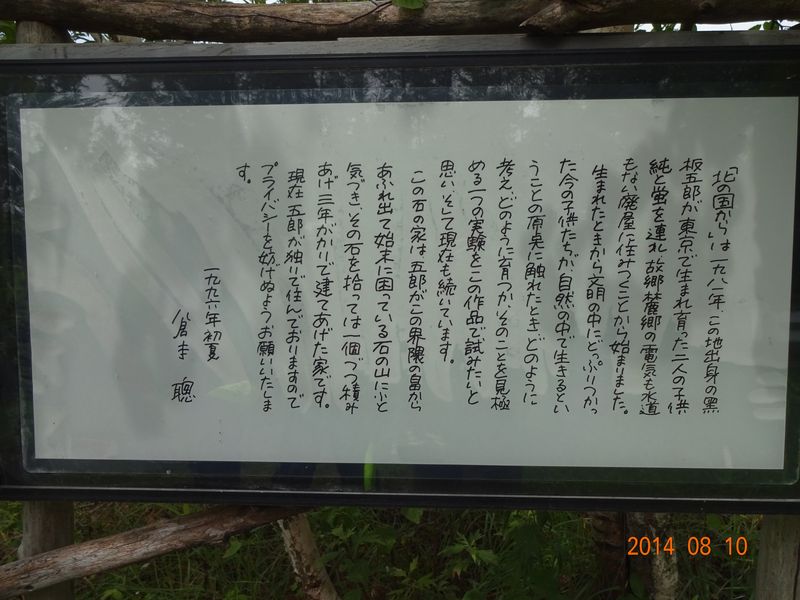 「北の国から」は一九八一年、この地出身の黒
板五郎が東京で生まれ育った二人の子供
純と蛍を連れ、故郷麓郷の電気も水道
もない廃屋に住みつくことから始まりました。
生まれたときから文明の中にどっぷりつかっ
た今の子供たちが、自然の中で生きるとい
うことの原点に触れたとき、どのように
考え、どのように育つか、そのことを見極
める一つの実験をこの作品で試みたいと
思い、そして現在も続いています。
この石の家は五郎がこの界隈の畠から
あふれ出て始末に困っている石の山にふと
気づき、その石を拾っては一個づつ積み
あげ三年がかりで建てあげた家です。
現在五郎が独りで住んでおりますので
プライバシーを妨げぬようお願いいたしま
す。
一九九八年初夏
倉本 聰
2014 08 10